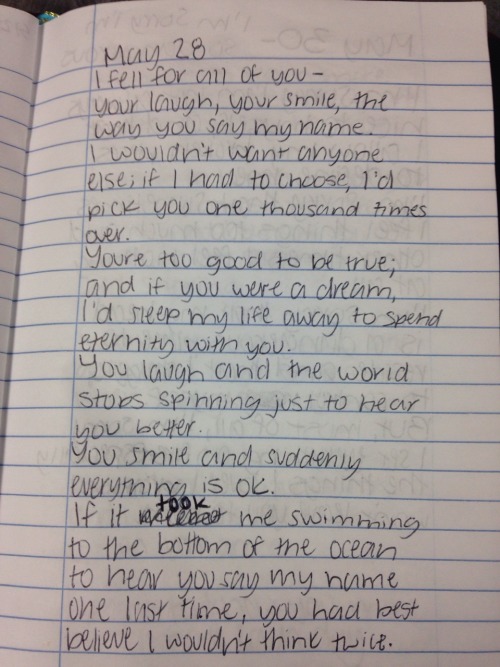 May 28
I fell for all of you—
your laugh, your smile, the
way you say my name.
I wouldn't want anyone
else; if I had to choose, I'd
pick you one thousand times
over.
Youre too good to be true;
and if you were a dream,
I'd sleep my life away to spend
eternity with you.
You laugh and the world
stops spinning just to hear
you better.
You smile and suddenly
everything is ok.
If it took me swimming
to the bottom of the ocean
to hear you say my name
one last time, you had best
believe I wouldn't think twice.